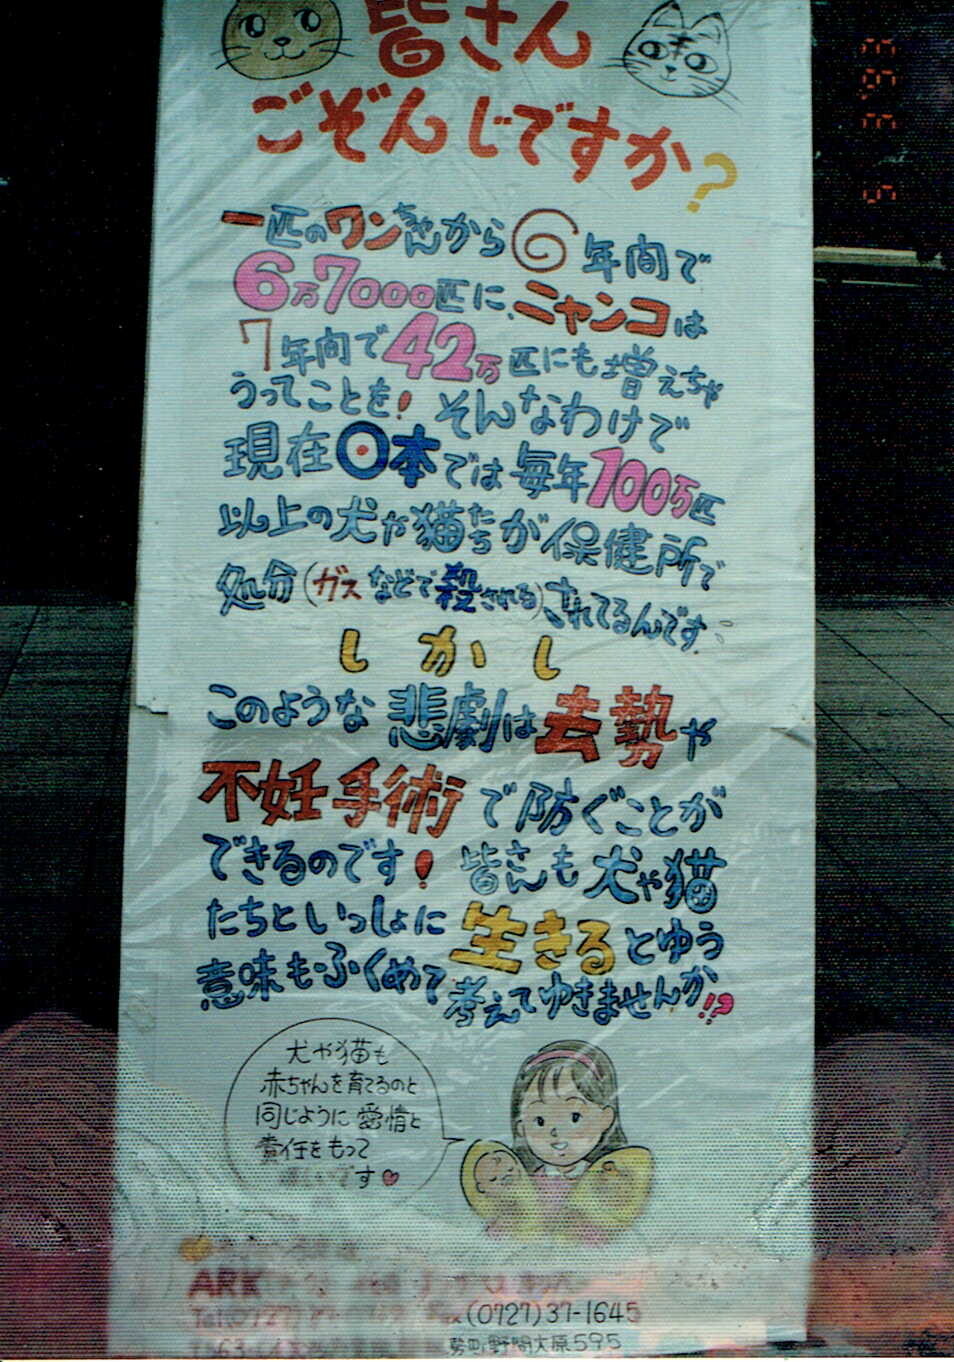 皆さん
ごぞんじですか?
一匹のワンちゃんから6年間で
6万7000匹に、ニャンコは
7年間で42万匹にも増えちゃ
うってことを!そんなわけで
現在日本では毎年100万匹
以上の犬や猫たちが保健所で
処分(ガスなどで殺される)されてるんです。
しかし
このような悲劇は去勢や
不妊手術で防ぐことが
できるのです!皆さんも犬や猫
たちといっしょに生きるとゆう
意味もふくめて考えてゆきませんか!?
犬や猫も
赤ちゃんを育てるのと
同じように愛情と
責任をもって
です♥
ARK
Fax(0727)37-1645
野間大原595